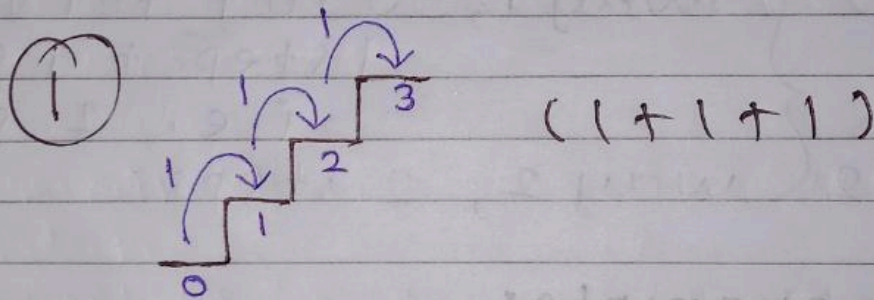 ①
1
1
1
3
2
1
0
(1+1+1)